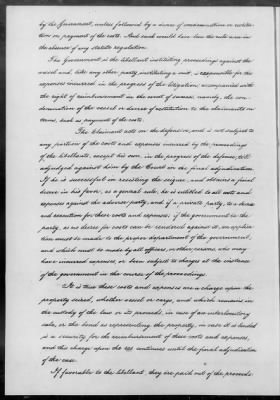 by the Government, unless followed by a decree of condemnation or restitu-
tion on payment of the costs. And such would have been the rule even in
the absence of any statute regulation.
The Government is the libellant instituting proceedings against the
vessel and like any other party instituting a suit, is responsible for the
expenses incurred in the progress of the litigation accompanied with
the right of reimbursement in the event of success, namely, the con-
demnation of the vessel or decree of restitution to the claimants on
terms, such as payment of the costs.
The Claimant acts on the defensive, and is not subject to
any portion of the costs and expenses incurred by the proceedings
of the libellants, except his own, in the progress of the defense, till
adjudged against him by the Court on the final adjudication.
If he is successful in resisting the seizure, and obtains a final
decree in his favor, as a general rule, he is entitled to all costs and
expenses against the adverse party, and if a private party, to a decree
and execution for these costs and expenses; if the government be the
party, as no decree for costs can be rendered against it, an applica-
tion must be made to the proper department of the government,
and which must be made by all officers, or other persons, who may
have incurred expenses, or been subject to charges at the instance
of the government in the course of the proceedings.
As is thus these costs and expenses are a charge upon the
property seized, whether vessel or cargo, and which remains in
the custody of the law or its proceeds, in case of an interlocutory
sale, or the bond as representing the property, in case it is bonded
is a security for the reimbursement of these costs and expenses,
and this charge upon the res continues until the final adjudication
of the case.
If favorable to the libellant, they are paid out of the proceeds